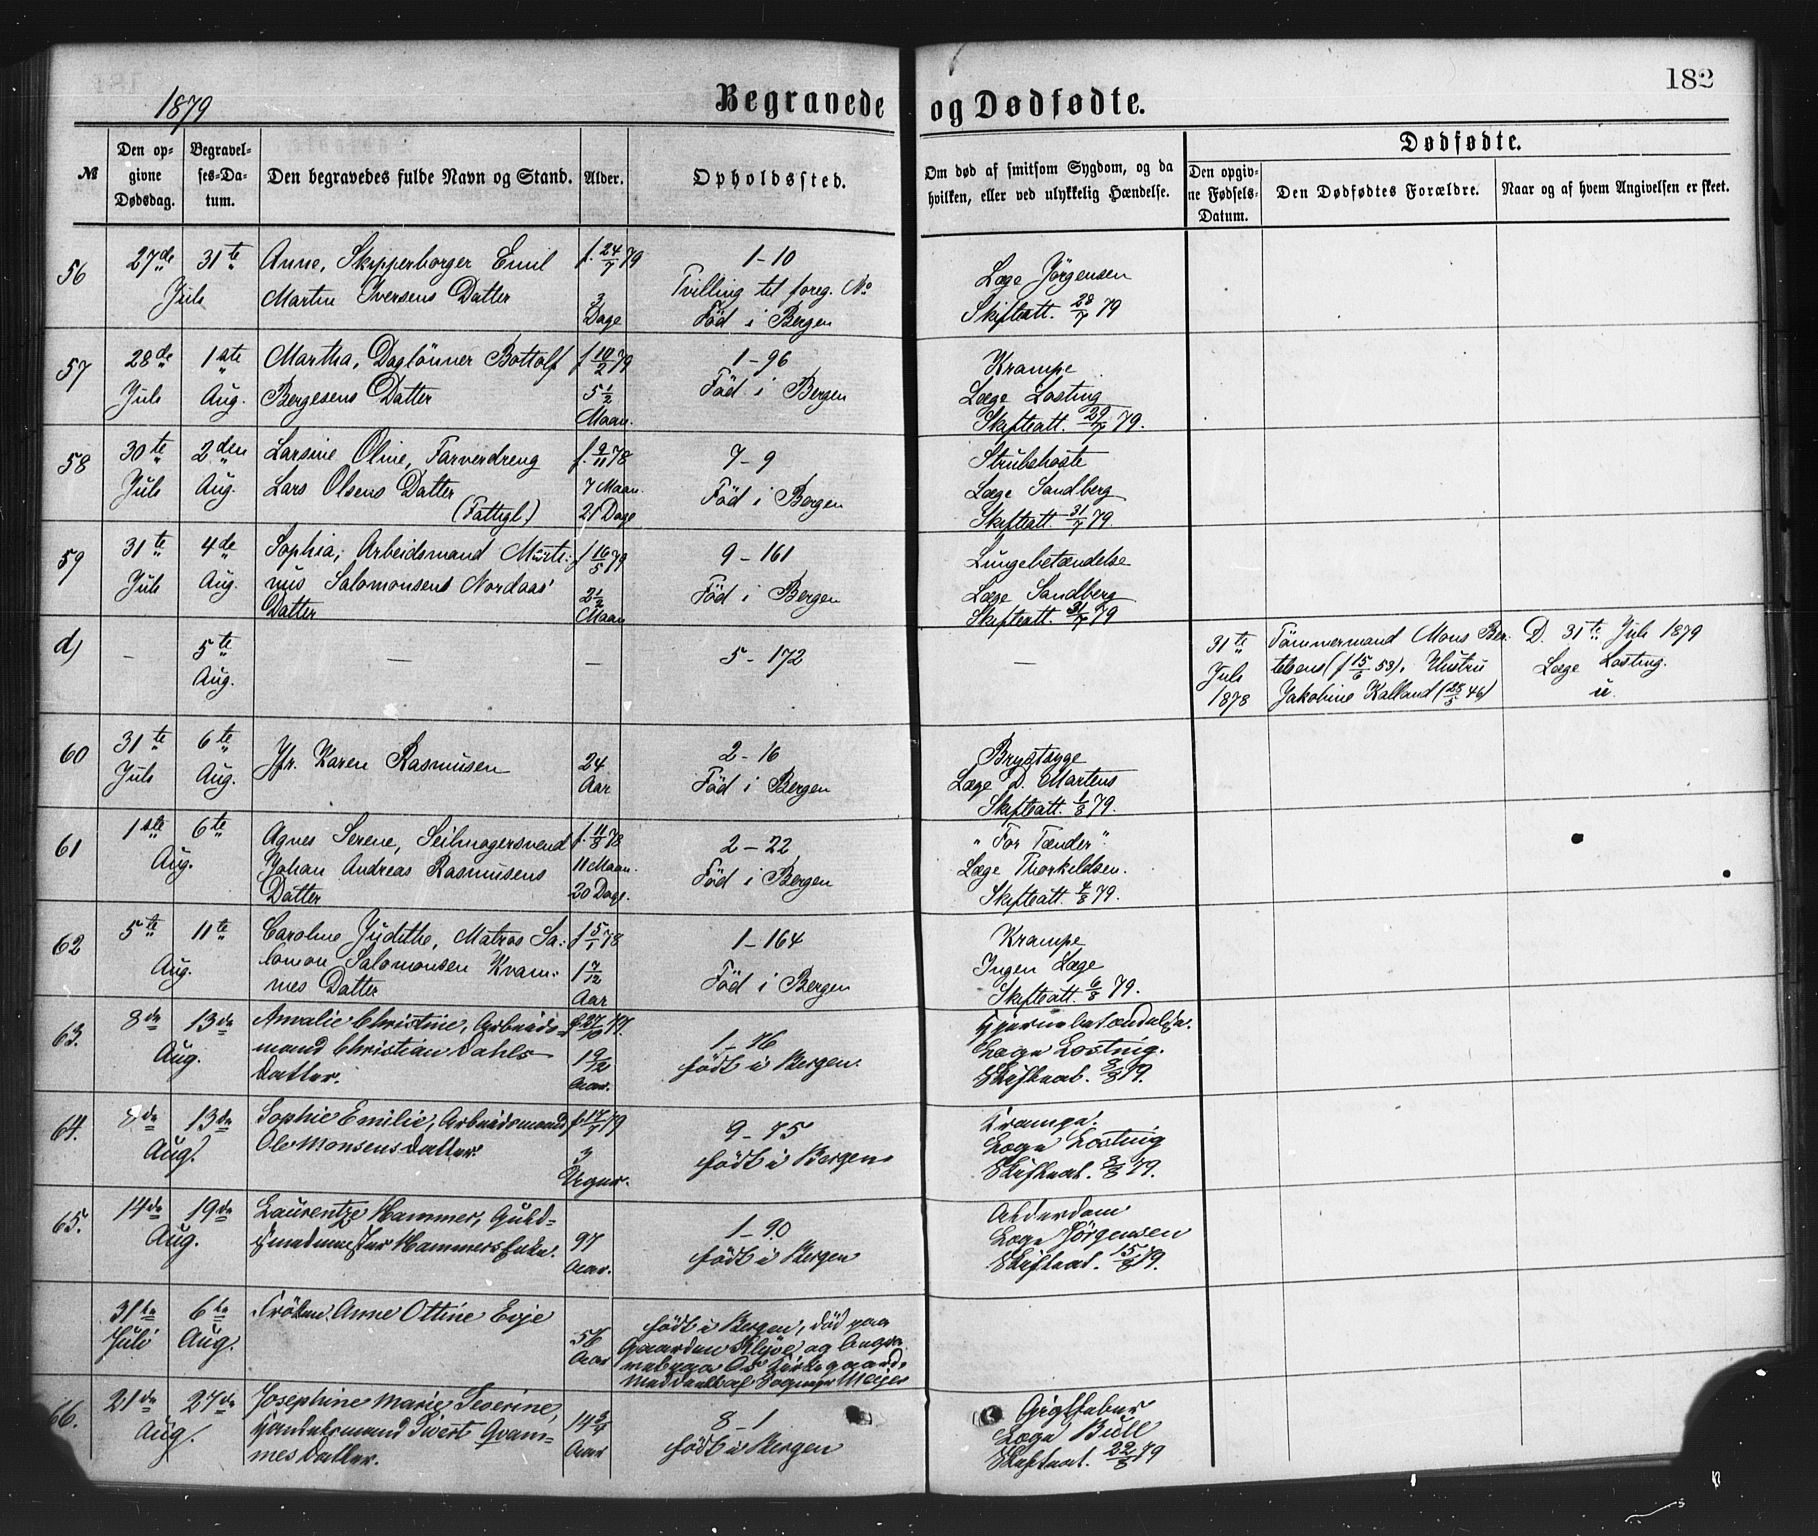 182
1879
Begravede og Dødfødte.
№
Den op-
givne
Dødsdag.
Begravel-
ses-Da-
tum.
Den begravedes fulde Navn og Stand.
Alder.
Opholdssted.
Om død af smitsom Sygdom, og da
hvilken, eller ved ulykkelig Hændelse.
Dødfødte.
Den opgiv-
ne Fødsels-
Datum.
Den Dødfødtes Forældre.
Naar og af hvem Angivelsen er skeet.
56
27de
Juli
31te
Anne, Skipperborger Emil
Martin Iversens Datter
f. 24/7 79
3
Dage
1-10
Tvilling til foreg. No
Född i Bergen
Læge Jørgensen
Skifteatt. 28/7 79
57
28de
Juli
1ste
Aug.
Martha, Daglönner Bottolf
Bergesens Datter
f 10/2 79
5 1/2
Maan.
1-96
Född i Bergen
Krampe
Læge Losting
Skifteatt. 29/7 79.
58
30te
Juli
2den
Aug.
Larsine Oline, Farverdreng
Lars Olsens Datter
(Fattigl.)
f. 9/11 78
7 Maan.
21 Dage
7-9
Född i Bergen
Strubehoste
Læge Sandberg
Skifteatt. 31/7 79
59
31te
Juli
4de
Aug.
Sophia, Arbeidsmand Marti-
nus Salomonsens Nordaas'
Datter
f 16/5 79
2 1/2
Maan
9-161
Född i Bergen
Lungebetændelse
Læge Sandberg
Skifteatt. 31/7 79
d)
-
5te
Aug.
-
-
5-172
-
31te
Juli
1878
Tömmermand Mons Ber-
telsens (f 15/6 53), Hustru
Jakobine Kalland (25/5 46)
D. 31te Juli 1879
Læge Losting.
u.
60
31te
Juli
6te
Aug.
Jfr. Karen Rasmusen
24
Aar
2-16
Född i Bergen
Brystsyge
Læge D. Martens
Skifteatt. 1/8 79.
61
1ste
Aug.
6te
Agnes Serene, Seilmagersvend
Johan Andreas Rasmusens
Datter
f. 11/8 78
11 Maan.
20 Dage.
2-22
Född i Bergen
"For Tænder".
Læge Thorkeldsen.
Skifteatt. 4/8 79.
62
5te
Aug.
11te
Caroline Judithe, Matros Sa-
lomon Salomonsen Kvam-
mes Datter
f 5/1 78
1 7/12
Aar
1-164
Född i Bergen
Krampe
Ingen Læge
Skifteatt. 6/8 79.
63.
8de
Aug.
13de
Amalie Christine, Arbeids-
mand Christian Dahls
Datter.
f 27/10 77.
1 9/12
Aar.
1-76
födt i Bergen.
Hjernebetændelse.
Læge Losting.
Skifteat. 8/8 79.
64.
8de
Aug.
13de
Sophie Emilie, Arbeidsmand
Ole Monsens Datter.
f. 17/7 79
3
Uger.
9-75
födt i Bergen
Krampe.
Læge Losting
Skifteat. 8/8 79.
65.
14de
Aug.
19de
Laurentze Hammer, Guld-
smedmester Hammers Enke.
97
Aar.
1-90
födt i Bergen
Alderdom
Læge Jørgensen
Skifteat. 15/8 79.
31te
Juli
6te
Aug.
Fröken Anne Ottine Evje
56
Aar
födt i Bergen, död paa
Gaarden Klyve, og begra-
vet paa Os Kirkegaard.
Meddeelt af Sognepr Meyer
66.
21de
Aug.
27de
Josephine Marie Severine,
Handelsmand Sivert Qvam-
mes Datter.
14 3/4
Aar
8-1
födt i Bergen
Gigtfeber
Læge Bull
Skifteat. 22/8 79